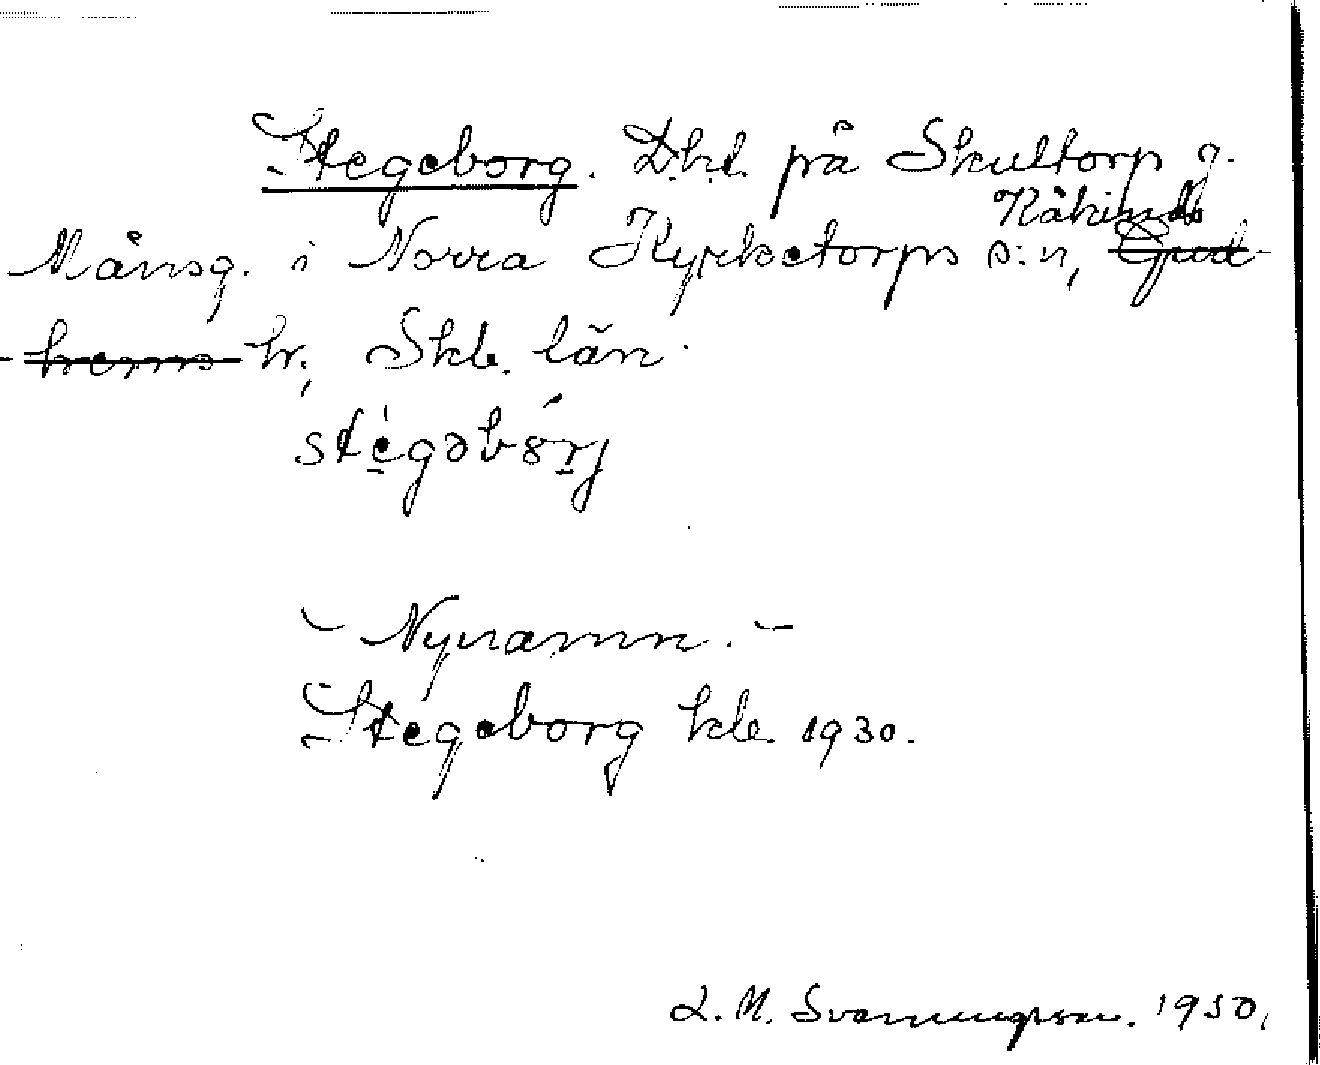 Stegeborg. D.h.l. på Skultorp 7.
Kåkinds
Månsg. i Norra Kyrketorps s:n, Gud-
-hems hr, Skb. län.
stégəbórj
- Nynamn. -
Stegeborg kbr. 1930.
L. M. Svanungsson. 1930.